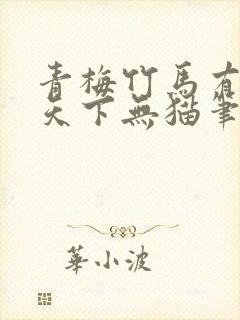 青梅竹馬有
天下無貓筆
華小波